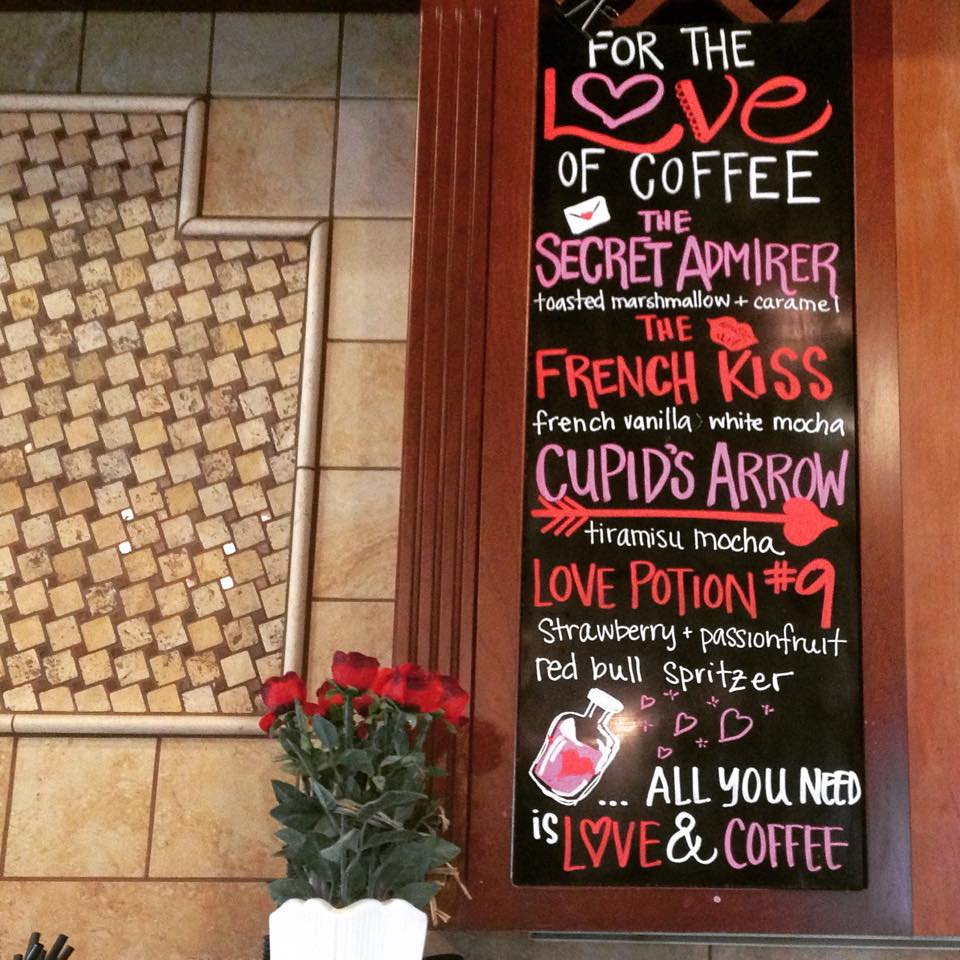 FOR THE
LOVE
OF COFFEE
THE
SECRET ADMIRER
toasted marshmallow + caramel
THE
FRENCH KISS
french vanilla white mocha
CUPID'S ARROW
tiramisu mocha
LOVE POTION #9
Strawberry + passionfruit
red bull spritzer
... ALL YOU NEED
is LOVE & COFFEE